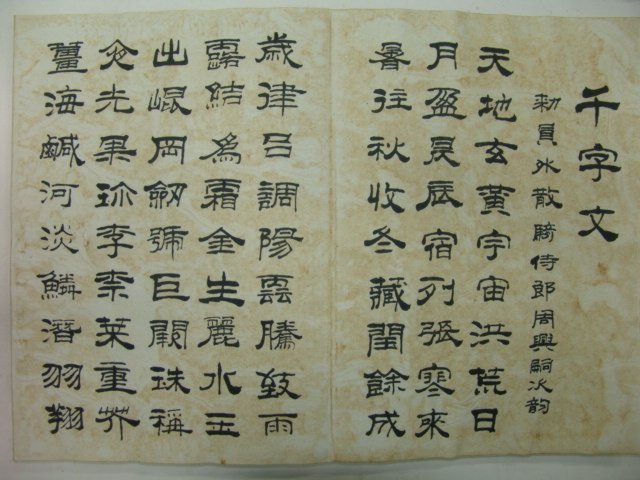 千字文
勅員外散騎侍郎周興嗣次韵
天地玄黃宇宙洪荒日
月盈昃辰宿列張寒來
暑往秋收冬藏閏餘成
歲律呂調陽雲騰致雨
露結為霜金生麗水玉
出崐岡劒號巨闕珠稱
夜光果珎李柰菜重芥
薑海鹹河淡鱗潛羽翔